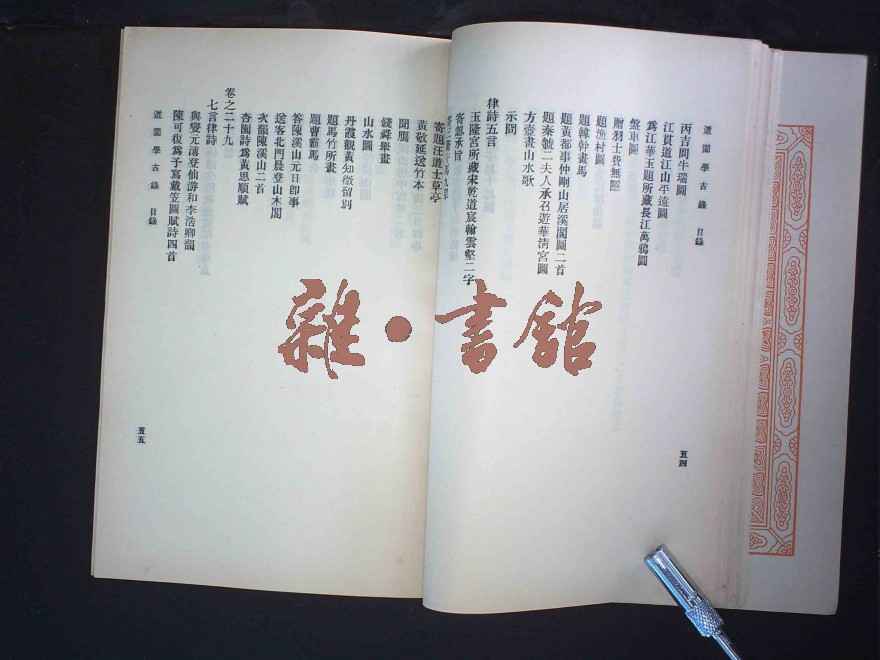 道園學古錄 目錄
丙吉問牛瑞圖
江貫道江山平遠圖
爲江華玉題所藏長江萬鴉圖
盤車圖
贈羽士費無隱
題漁村圖
題韓幹畫馬
題黃都事仲剛山居溪閣圖二首
題秦虢二夫人承召遊華清宮圖
方壺畫山水歌
示問
律詩五言
玉隆宮所藏宋乾道宸翰雲壑二字
寄題汪道士草亭
黃敬延送竹本
聞鴈
錢舜舉畫
山水圖
丹霞觀黃知微留別
題馬竹所畫
題曹霸馬
答陳溪山元日卽事
送客北門晨登山木閣
次韻陳溪山二首
杏園詩爲黃思順賦
卷之二十九
七言律詩
與燮元溥登仙游和李浩卿韻
陳可復爲予寫戴笠圖賦詩四首
道園學古錄 目錄
五四
五五
雜·書館